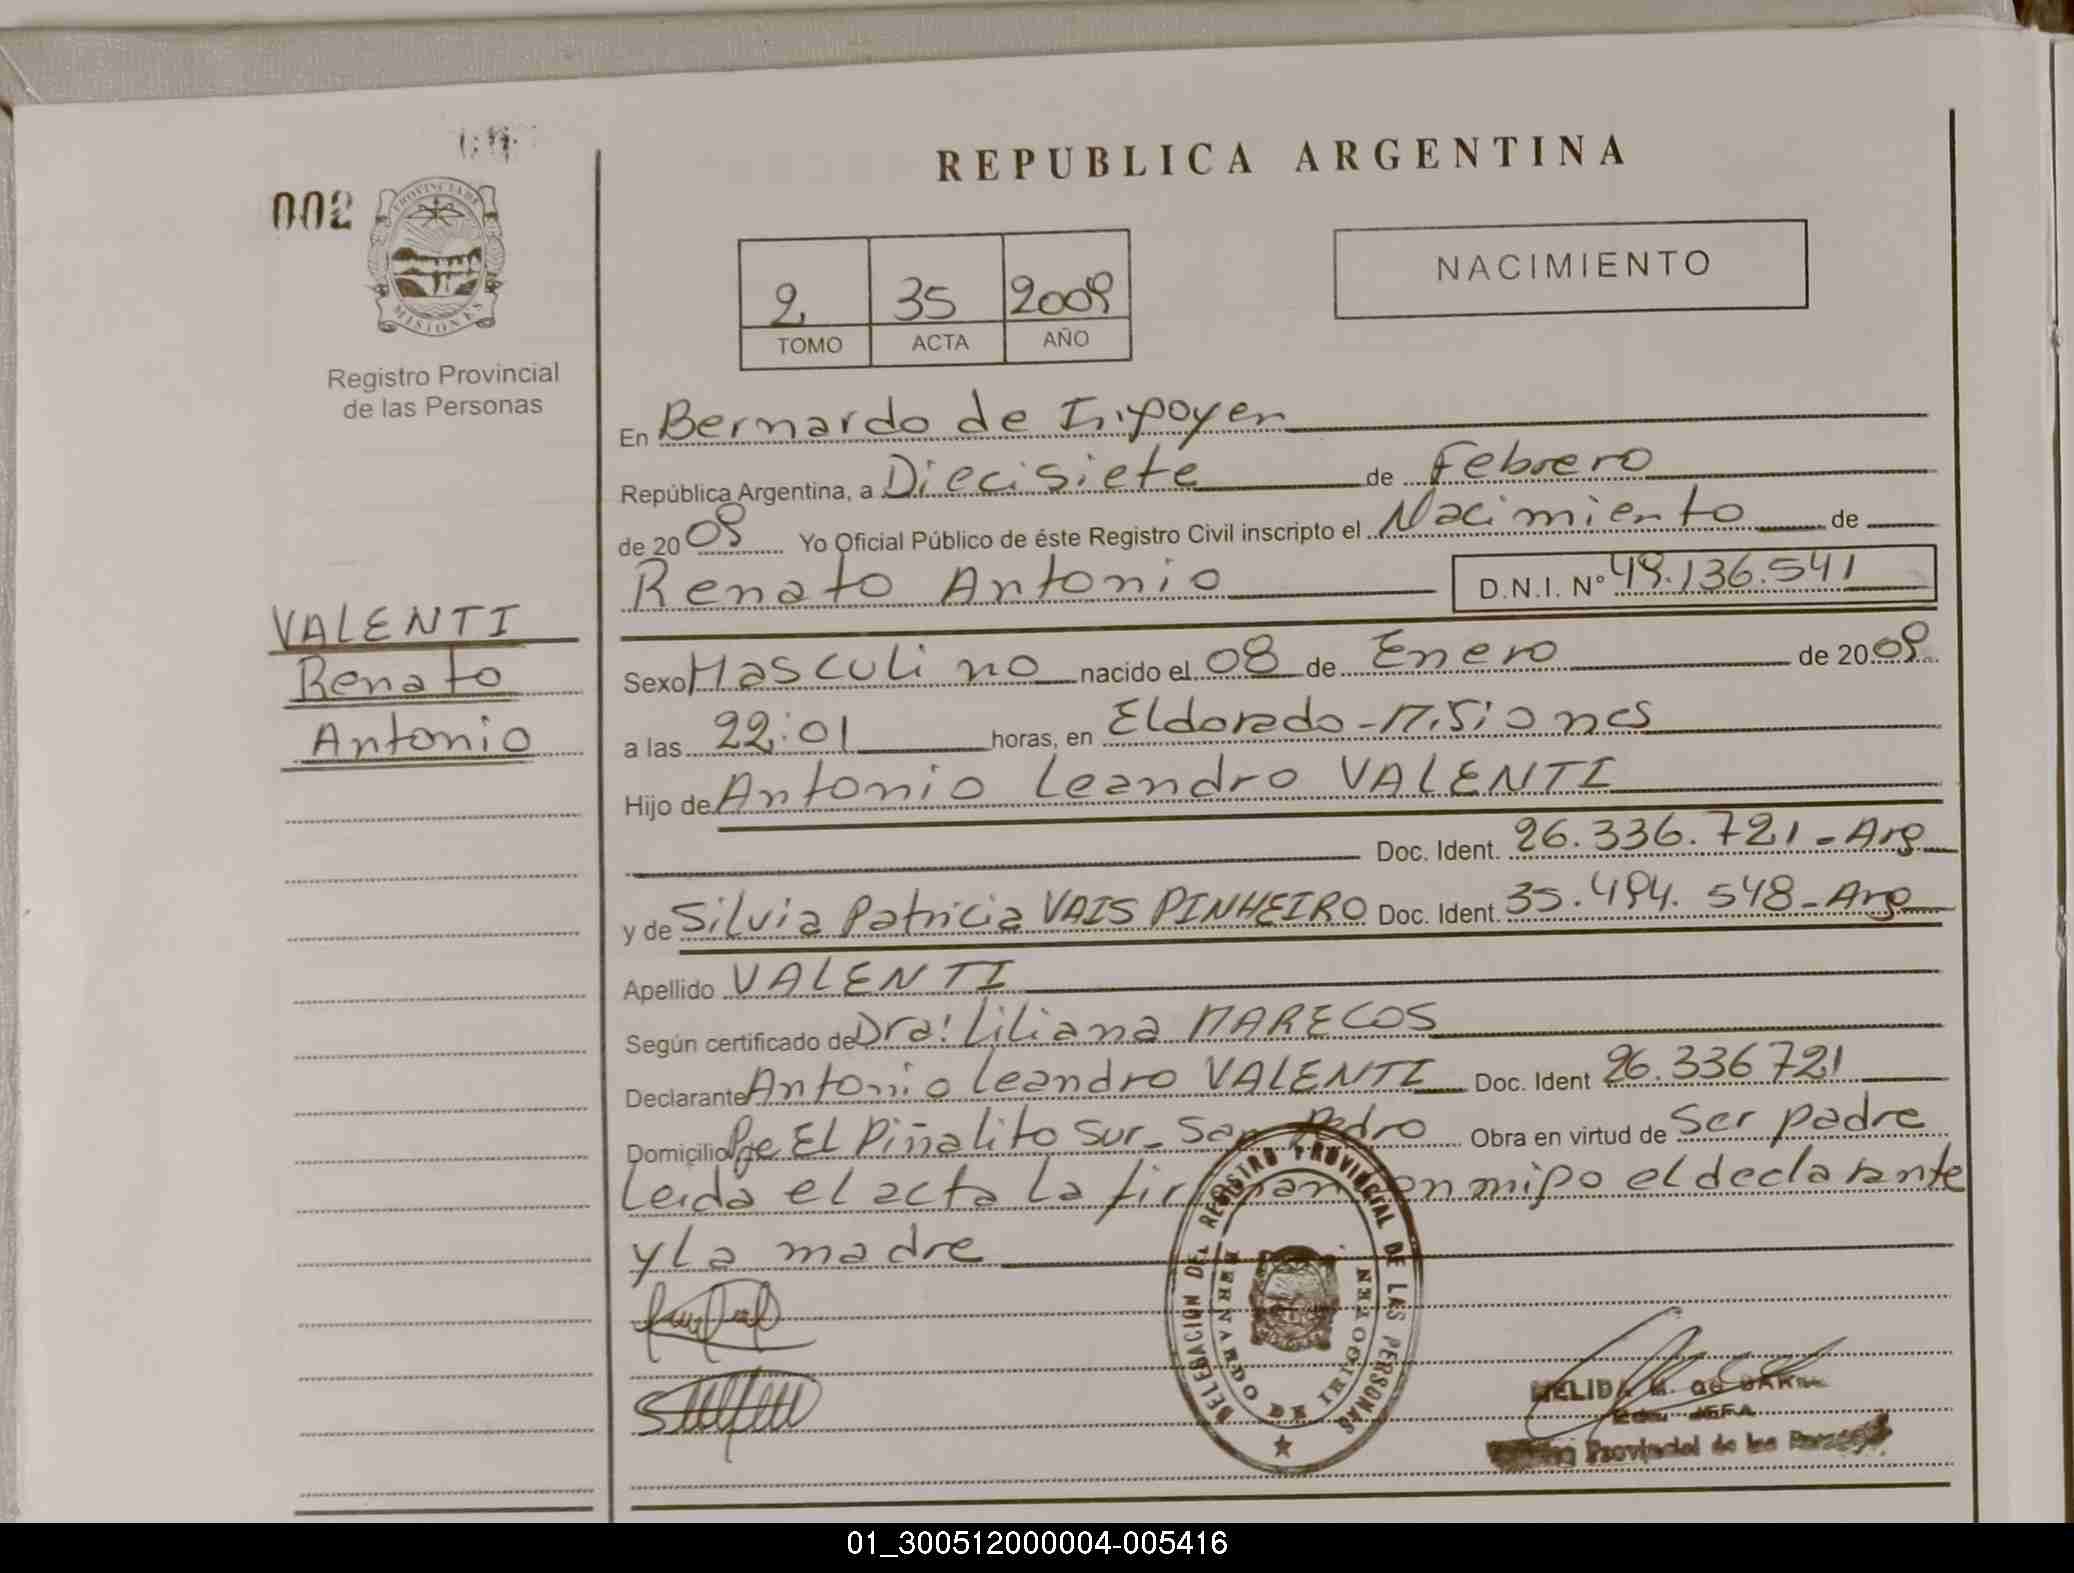 002
PROVINCIA DE
MISIONES
Registro Provincial
de las Personas
VALENTI
Renato
Antonio
REPUBLICA ARGENTINA
2 35 2009
TOMO ACTA AÑO
NACIMIENTO
En Bernardo de Irigoyen
República Argentina, a Diecisiete de Febrero
de 2009 Yo Oficial Público de éste Registro Civil inscripto el Nacimiento de
Renato Antonio D.N.I. Nº 49.136.541
Sexo Masculino nacido el 08 de Enero de 2009
a las 22:01 horas, en Eldorado-Misiones
Hijo de Antonio Leandro VALENTI
Doc. Ident. 26.336.721-Arg
y de Silvia Patricia VAIS PINHEIRO Doc. Ident. 35.494.548-Arg
Apellido VALENTI
Según certificado de Dra: Liliana MARECOS
Declarante Antonio Leandro VALENTI Doc. Ident 26.336721
Domicilio Pje El Piñalito Sur-San Pedro Obra en virtud de Ser padre
Leida el acta la firman conmigo el declarante
y La madre
DELEGACION DEL REGISTRO PROVINCIAL DE LAS PERSONAS
BERNARDO DE IRIGOYEN
JEFA
Provincial de las Personas
01_300512000004-005416